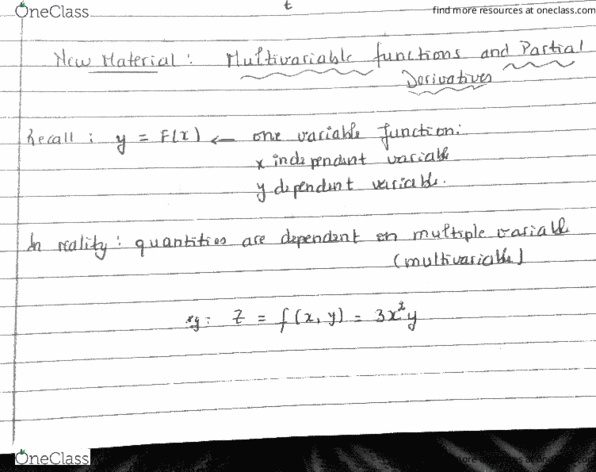 OneClass
find more resources at oneclass.com
t
New Material: Multivariable functions and Partial
Derivatives
Recall: y = F(x) ← one variable function:
x independent variable
y dependent variable.
In reality: quantities are dependent on multiple variable
(multivariable)
eg: Z = f(x, y) = 3x²y
OneClass
find more resources at oneclass.com